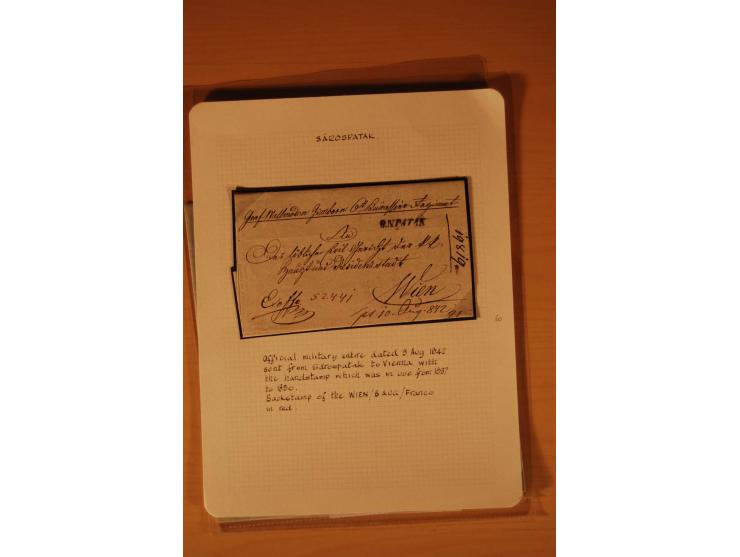 SÁROSPATAK
Graf Wallmoden Gimborn 6th Kürassier Regiment
S.N.PATAK
An
Das löbliche Civil Gericht der k. k.
Haupt und Residenzstadt
Wien
52441
pr 10. Aug. 842
60
Official military entire dated 3 Aug 1842
sent from Sárospatak to Vienna with
the handstamp which was in use from 1837
to 1850.
Backstamp of the WIEN/6 AUG/Franco
in red.